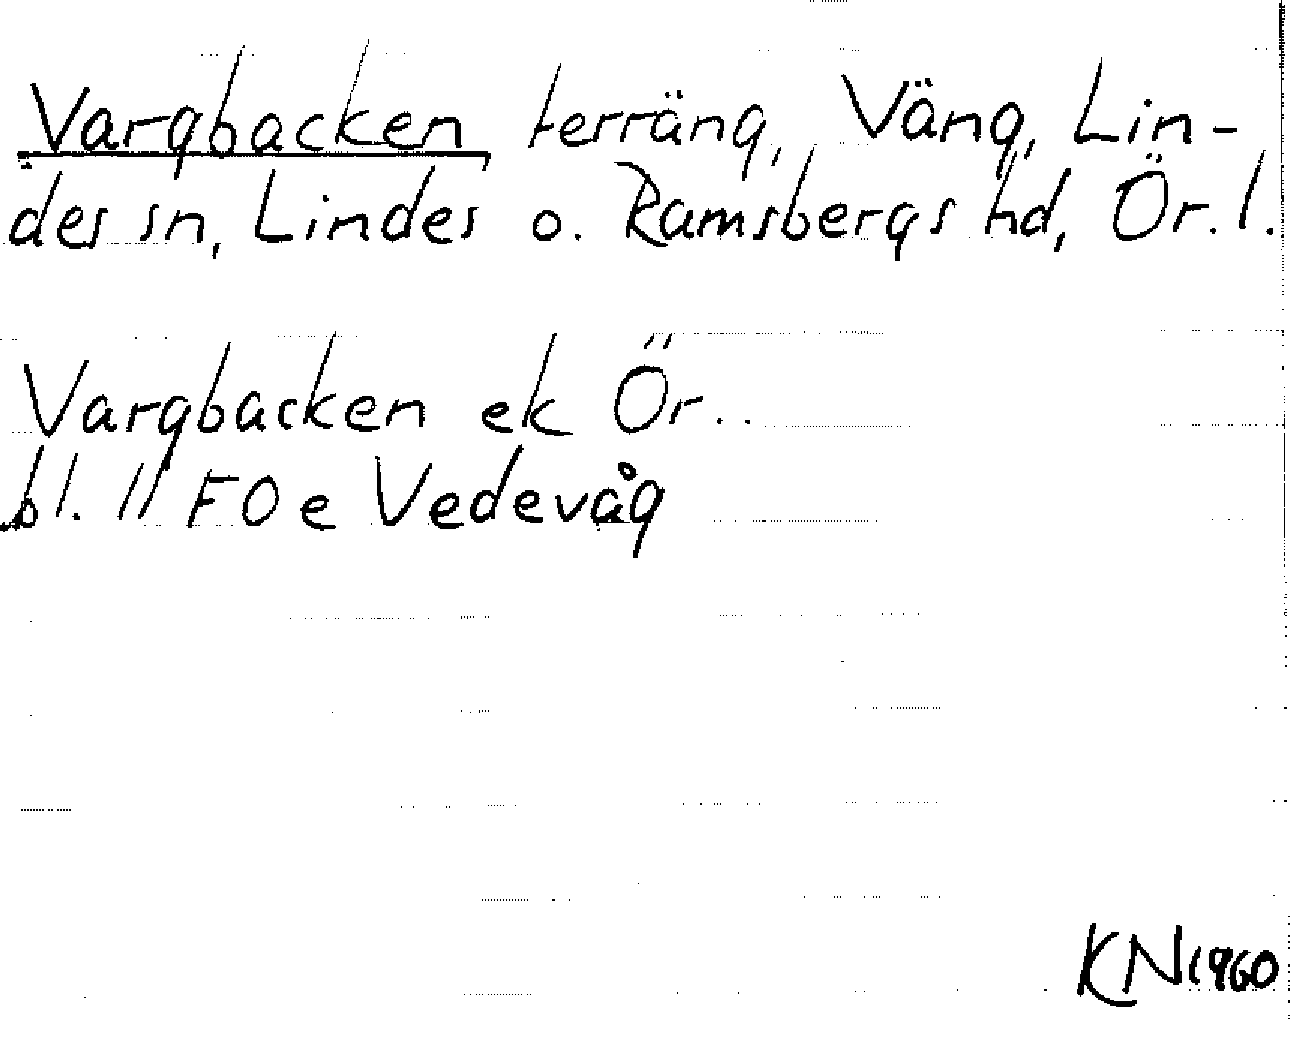 Vargbacken terräng, Väng, Lin-
des sn, Lindes o. Ramsbergs hd, Ör. l.
Vargbacken ek Ör..
bl. 11 FO e Vedevåg
KN 1960